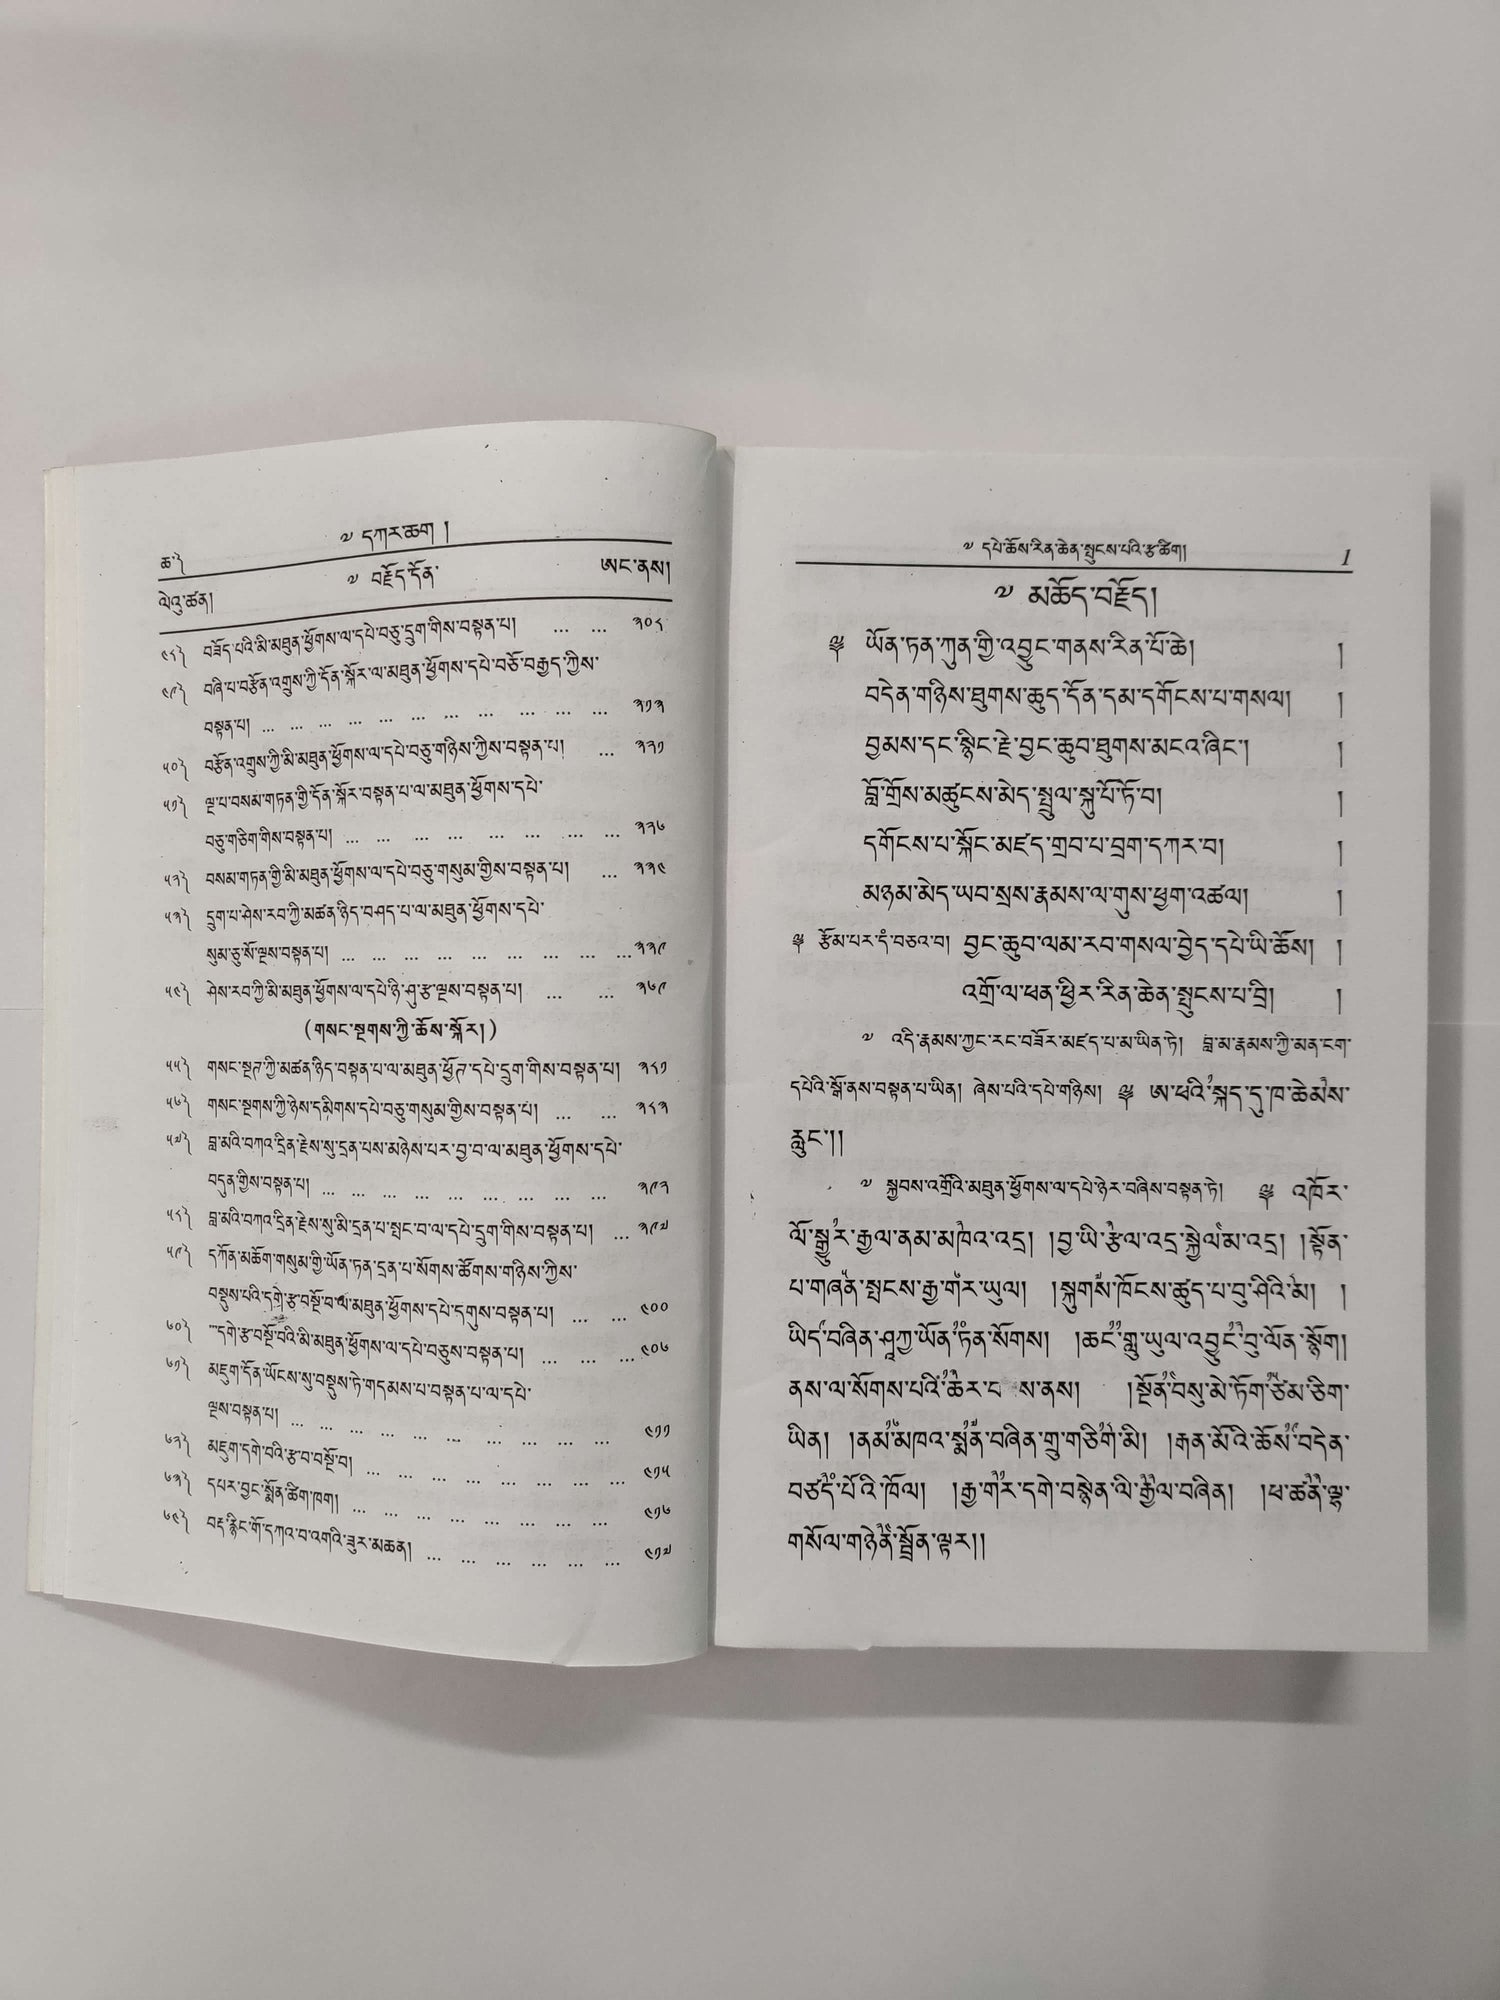 ༧ དཀར་ཆག །
ཆ༽
༧ བརྗོད་དོན་
ཨང་ནས།
ལེའུ་ཚན།
༤༨༽ བཟོད་པའི་མི་མཐུན་ཕྱོགས་ལ་དཔེ་བཅུ་དྲུག་གིས་བསྟན་པ། ... ... ༣༠༨
༤༩༽ བཞི་པ་བརྩོན་འགྲུས་ཀྱི་དོན་སྐོར་ལ་མཐུན་ཕྱོགས་དཔེ་བཅོ་བརྒྱད་ཀྱིས་
བསྟན་པ། ... ... ... ... ... ... ... ... ... ... ... ༣༡༣
༥༠༽ བརྩོན་འགྲུས་ཀྱི་མི་མཐུན་ཕྱོགས་ལ་དཔེ་བཅུ་གཉིས་ཀྱིས་བསྟན་པ། ... ༣༢༡
༥༡༽ ལྔ་པ་བསམ་གཏན་གྱི་དོན་སྐོར་བསྟན་པ་ལ་མཐུན་ཕྱོགས་དཔེ་
བཅུ་གཅིག་གིས་བསྟན་པ། ... ... ... ... ... ... ... ... ༣༢༦
༥༢༽ བསམ་གཏན་གྱི་མི་མཐུན་ཕྱོགས་ལ་དཔེ་བཅུ་གསུམ་གྱིས་བསྟན་པ། ... ༣༣༤
༥༣༽ དྲུག་པ་ཤེས་རབ་ཀྱི་མཚན་ཉིད་བཤད་པ་ལ་མཐུན་ཕྱོགས་དཔེ་
སུམ་ཅུ་སོ་ལྔས་བསྟན་པ། ... ... ... ... ... ... ... ... ... ...༣༣༩
༥༤༽ ཤེས་རབ་ཀྱི་མི་མཐུན་ཕྱོགས་ལ་དཔེ་ཉི་ཤུ་རྩ་ལྔས་བསྟན་པ། ... ... ༣༦༩
(གསང་སྔགས་ཀྱི་ཆོས་སྐོར།)
༥༥༽ གསང་སྔཊ་ཀྱི་མཚན་ཉིད་བསྟན་པ་ལ་མཐུན་ཕྱོཊ་དཔེ་དྲུག་གིས་བསྟན་པ། ༣༨༡
༥༦༽ གསང་སྔགས་ཀྱི་ཉེས་དམིགས་དཔེ་བཅུ་གསུམ་གྱིས་བསྟན་པ། ... ... ༣༨༣
༥༧༽ བླ་མའི་བཀའ་དྲིན་རྗེས་སུ་དྲན་པས་མཉེས་པར་བྱ་བ་ལ་མཐུན་ཕྱོགས་དཔེ་
བདུན་གྱིས་བསྟན་པ། ... ... ... ... ... ... ... ... ... ༣༩༢
༥༨༽ བླ་མའི་བཀའ་དྲིན་རྗེས་སུ་མི་དྲན་པ་སྤང་བ་ལ་དཔེ་དྲུག་གིས་བསྟན་པ། ... ༣༩༧
༥༩༽ དཀོན་མཆོག་གསུམ་གྱི་ཡོན་ཏན་དྲན་པ་སོགས་ཚོགས་གཉིས་ཀྱིས་
བསྡུས་པའི་དགེ་རྩ་བསྔོ་བ་ལ་མཐུན་ཕྱོགས་དཔེ་དགུས་བསྟན་པ། ... ... ༤༠༠
༦༠༽ དགེ་རྩ་བསྔོ་བའི་མི་མཐུན་ཕྱོགས་ལ་དཔེ་བཅུས་བསྟན་པ། ... ... ...༤༠༦
༦༡༽ མཇུག་དོན་ཡོངས་སུ་བསྡུས་ཏེ་གདམས་པ་བསྟན་པ་ལ་དཔེ་
ལྔས་བསྟན་པ། ... ... ... ... ... ... ... ... ... ... ༤༡༡
༦༢༽ མཇུག་དགེ་བའི་རྩ་བ་བསྔོ་བ། ... ... ... ... ... ... ... ... ༤༡༥
༦༣༽ དཔར་བྱང་སྨོན་ཚིག་ཁག། ... ... ... ... ... ... ... ... ༤༡༦
༦༤༽ བརྡ་རྙིང་གོ་དཀའ་བ་འགའི་ཟུར་མཆན། ... ... ... ... ... ... ༤༡༧
༧ དཔེ་ཆོས་རིན་ཆེན་སྤུངས་པའི་རྩ་ཚིག། 1
༧ མཆོད་བརྗོད།
༈ ཡོན་ཏན་ཀུན་གྱི་འབྱུང་གནས་རིན་པོ་ཆེ། །
བདེན་གཉིས་ཐུགས་ཆུད་དོན་དམ་དགོངས་པ་གསལ། །
བྱམས་དང་སྙིང་རྗེ་བྱང་ཆུབ་ཐུགས་མངའ་ཞིང་། །
བློ་གྲོས་མཚུངས་མེད་སྤྲུལ་སྐུ་པོ་ཏོ་བ། །
དགོངས་པ་སྐོང་མཛད་གྲབ་པ་བྲག་དཀར་བ། །
མཉམ་མེད་ཡབ་སྲས་རྣམས་ལ་གུས་ཕྱག་འཚལ། །
༈ རྩོམ་པར་དཾ་བཅའ་བ། བྱང་ཆུབ་ལམ་རབ་གསལ་བྱེད་དཔེ་ཡི་ཆོས། །
འགྲོ་ལ་ཕན་ཕྱིར་རིན་ཆེན་སྤུངས་པ་བྲི། །
༧ འདི་རྣམས་ཀྱང་རང་བཟོར་མཛད་པ་མ་ཡིན་ཏེ། བླ་མ་རྣམས་ཀྱི་མན་ངག་
དཔེའི་སྒོ་ནས་བསྟན་པ་ཡིན། ཞེས་པའི་དཔེ་གཉིས། ༈ ཨ་ཕའི་སྐད་དུ་ཁ་ཆེམས་
རླུང་།།
༧ སྐྱབས་འགྲོའི་མཐུན་ཕྱོགས་ལ་དཔེ་ཉེར་བཞིས་བསྟན་ཏེ། ༈ འཁོར་
ལོ་སྒྱུར་རྒྱལ་ནམ་མཁའི་འདྲ། །བྱ་ཡི་རྩེལ་འདྲ་སྐྱེལ་མ་འདྲ། །སྟོན་
པ་གཞན་སྤངས་རྒྱ་གར་ཡུལ། །སྐུགས་ཁོངས་ཚུད་པ་བུ་ཤིའི་མ། །
ཡིད་བཞིན་ཤཱཀྱ་ཡོན་ཏན་སོགས། །ཆང་གླུ་ཡུལ་འབྱུང་བུ་ལོན་སྙོག།
ནས་ལ་སོགས་པའི་ཆེར་ས་ནས། །སྔོན་བསུ་མེ་ཏོག་ཙམ་ཅིག་
ཡིན། །ནམ་མཁའ་སྨན་བཞིན་གྲུ་གཅིག་མི། །རྒན་མོའི་ཆོས་བདེན་
བཙད་པོའི་ཁོལ། །རྒྱ་གར་དགེ་བསྙེན་ལི་རྒྱལ་བཞིན། །ཕ་ཚན་ལྷ་
གསོལ་གཉེན་སྦྲོན་ལྟར།།